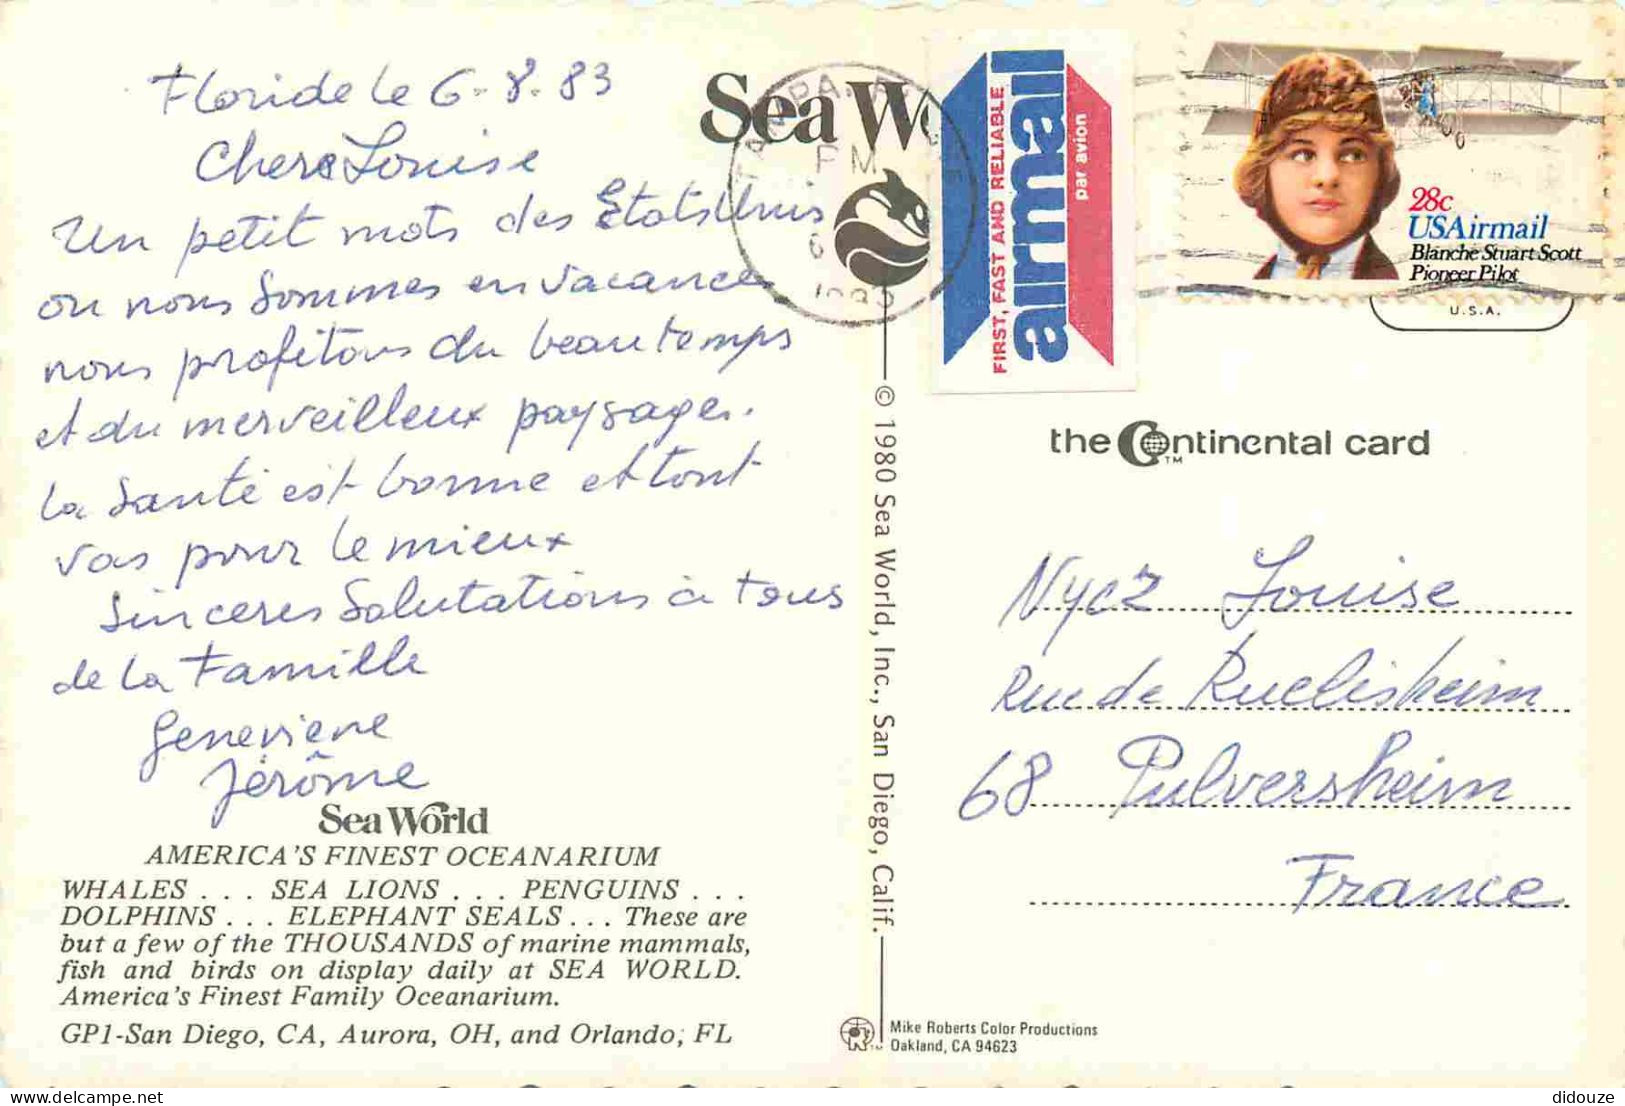 Floride le 6-8-83
Chere Louise
Un petit mots des EtatsUnis
ou nous sommes en vacances
nous profitons du beau temps
et du merveilleux paysages.
la santé est bonne et tout
vas pour le mieux
Sinceres Salutations à tous
de la Famille
Geneviève
Jérôme
Sea World
AMERICA'S FINEST OCEANARIUM
WHALES . . . SEA LIONS . . . PENGUINS . . .
DOLPHINS . . . ELEPHANT SEALS . . . These are
but a few of the THOUSANDS of marine mammals,
fish and birds on display daily at SEA WORLD.
America's Finest Family Oceanarium.
GP1-San Diego, CA, Aurora, OH, and Orlando, FL
Sea Wo
TAMPA, F
PM
6
© 1980 Sea World, Inc., San Diego, Calif.
FIRST, FAST AND RELIABLE
airmail
par avion
28c
USAirmail
Blanche Stuart Scott
Pioneer Pilot
U.S.A.
the Continental card
TM
Nycz Louise
Rue de Ruelisheim
68 Pulversheim
France
Mike Roberts Color Productions
Oakland, CA 94623
delcampe.net
didouze